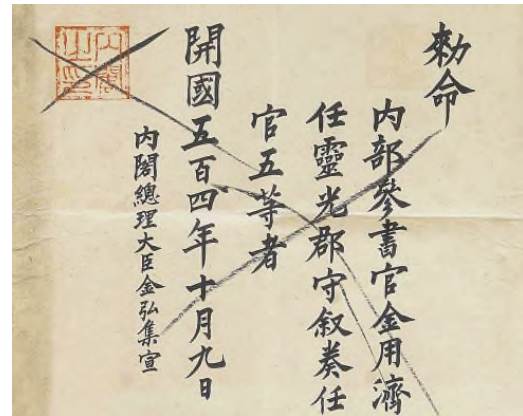 勅命
内部參書官金用濟
任靈光郡守叙奏任
官五等者
開國五百四年十月九日
內閣總理大臣金弘集宣
內閣之印